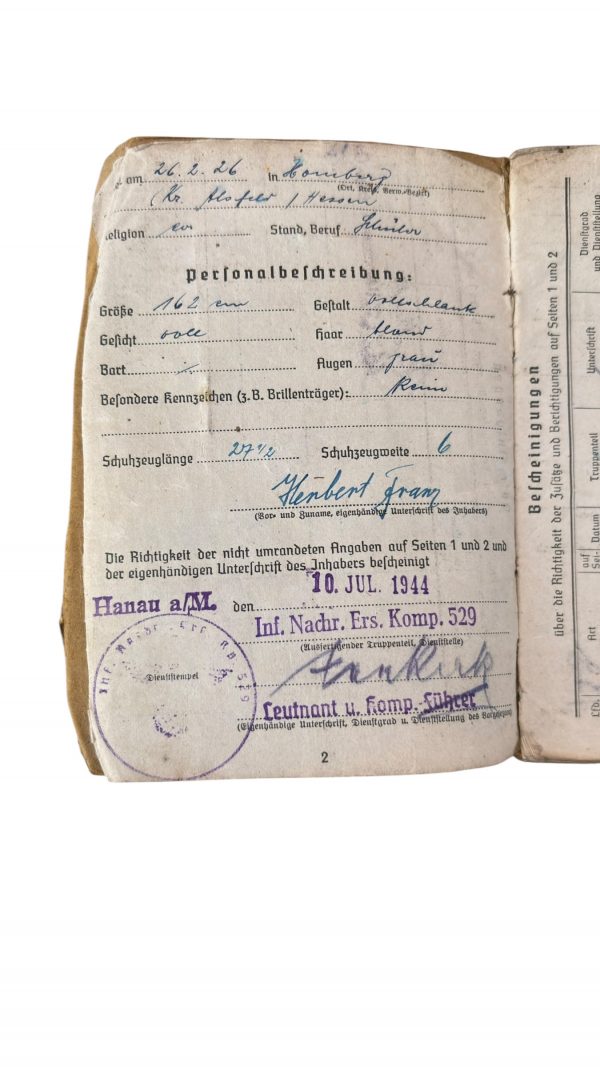 am 26.2.26 in Homberg
(Ort, Kreis, Verw.-Bezirk)
(Kr. Alsfeld / Hessen
eligion ev Stand, Beruf Schüler
Personalbeschreibung:
Größe 162 cm Gestalt vollschlank
Gesicht voll Haar blond
Bart Augen grau
Besondere Kennzeichen (z.B. Brillenträger): Kein
Schuhzeuglänge 27 1/2 Schuhzeugweite 6
Herbert Franz
(Vor- und Zuname, eigenhändige Unterschrift des Inhabers)
Die Richtigkeit der nicht umrandeten Angaben auf Seiten 1 und 2 und
der eigenhändigen Unterschrift des Inhabers bescheinigt
Hanau a/M. den 10. JUL. 1944
Inf. Nachr. Ers. Komp. 529
(Ausfertigender Truppenteil, Dienststelle)
Dienststempel
Leutnant u. Komp.-Führer
(Eigenhändige Unterschrift, Dienstgrad u. Dienststellung des Vorgesetzten)
2
Bescheinigungen
über die Richtigkeit der Zusätze und Berichtigungen auf Seiten 1 und 2
Lfd.
Art
auf
Sei-
Datum
Truppenteil
Unterschrift
Dienstgrad
und Dienststellung